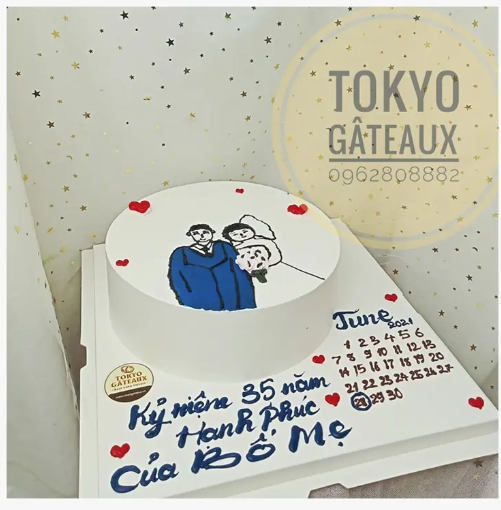 TOKYO
GÂTEAUX
0962808882
June
2021
1 2 3 4 5 6
7 8 9 10 11 12 13
14 15 16 17 18 19 20
21 22 23 24 25 26 27
28 29 30
TOKYO
GÂTEAUX
Kỷ niệm 35 năm
Hạnh Phúc
Của Bố Mẹ